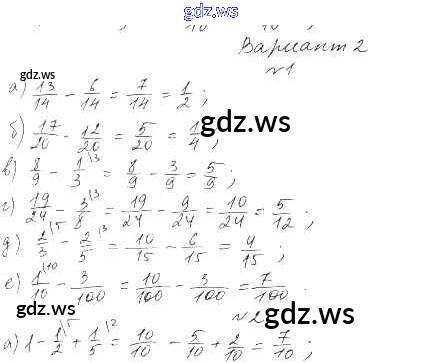 gdz.ws
Вариант 2
gdz.ws
№1
а) 13/14 - 6/14 = 7/14 = 1/2 ;
б) 17/20 - 12/20 = 5/20 = 1/4 ;
gdz.ws
в) 8/9 - 1/3 \3 = 8/9 - 3/9 = 5/9 ;
г) 19/24 - 3/8 \3 = 19/24 - 9/24 = 10/24 = 5/12 ;
gdz.ws
д) 2/3 \5 - 2/5 \3 = 10/15 - 6/15 = 4/15 ;
е) 1/10 \10 - 3/100 = 10/100 - 3/100 = 7/100
gdz.ws
№2
а) 1 - 1/2 \5 + 1/5 \2 = 10/10 - 5/10 + 2/10 = 7/10 ;
gdz.ws
gdz.ws